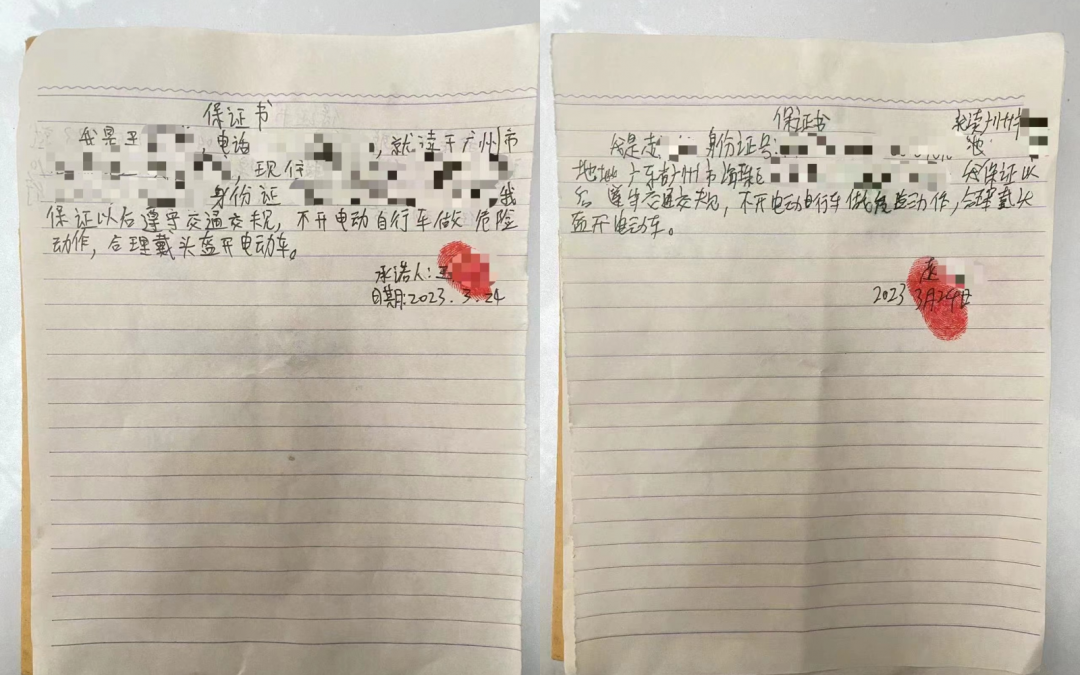 保证书
我是王
电话 ,就读于广州市
,现住
身份证 ,我
保证以后遵守交通交规,不开电动自行车做危险
动作,合理戴头盔开电动车。
承诺人:王
日期:2023.3.24
保证书 就读广州市
我是 身份证号:
地址广东省广州市海珠区 我保证以
后遵守交通交规,不开电动自行车做危险动作,合理戴头
盔开电动车。
2023 3月24日